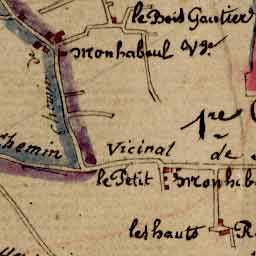 le Bois Gautier
Monhaboul Vge.
Chemin
1re C
Chemin Vicinal de
le Petit Monhab
les hauts R